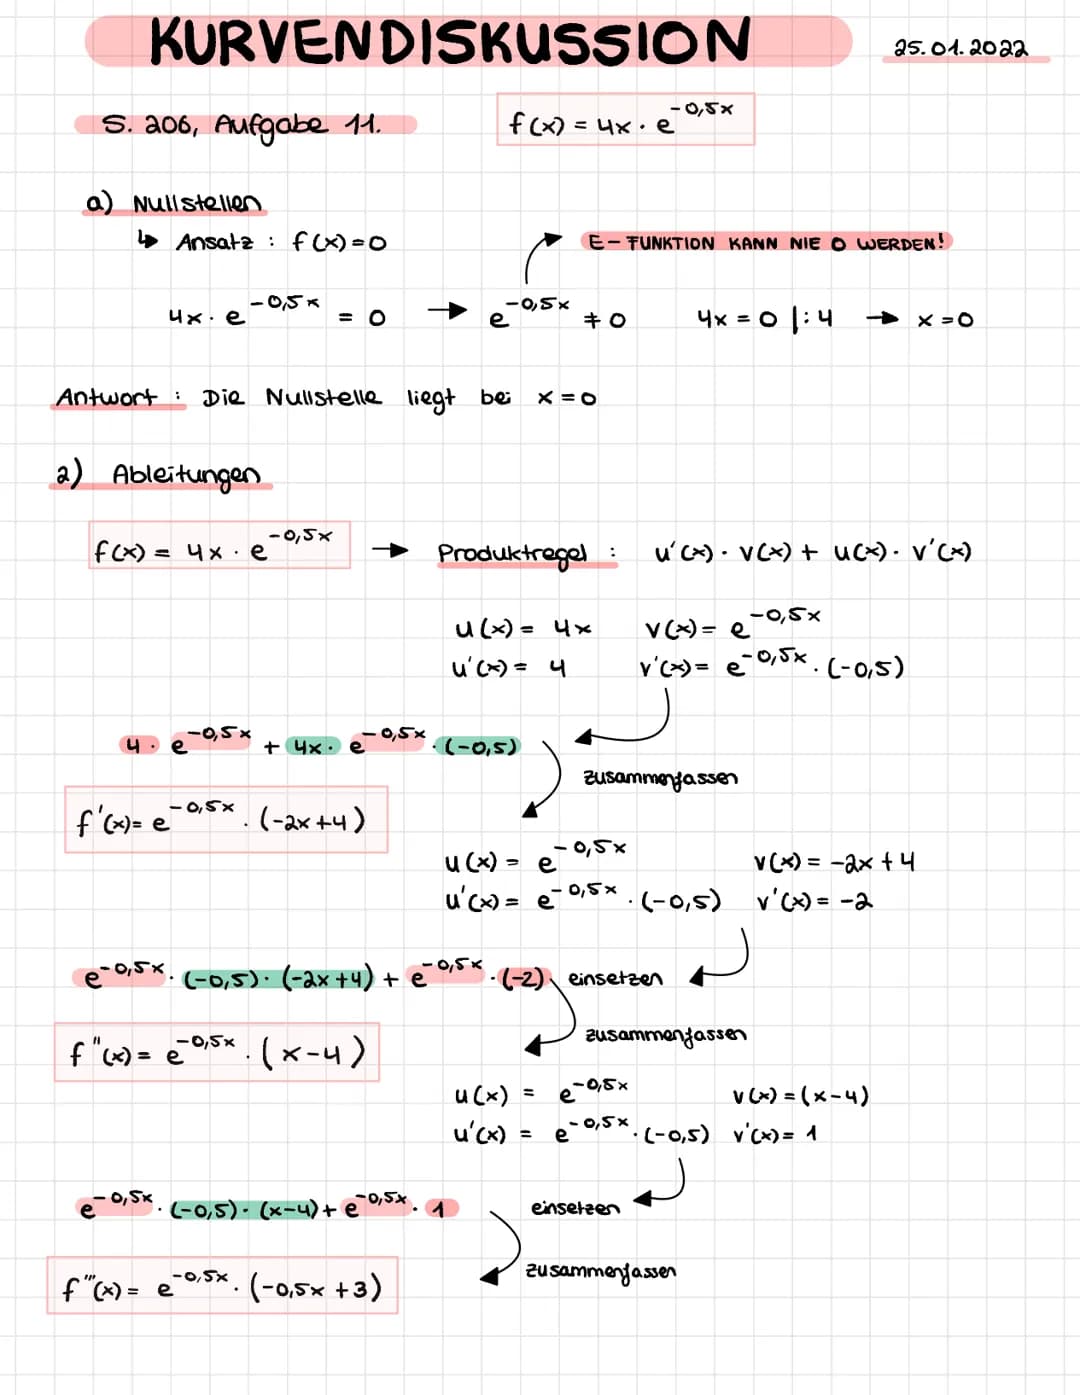 KURVENDISKUSSION 25.01.2022
S. 206, Aufgabe 11. f(x) = 4x · e^-0,5x
a) Nullstellen
↳ Ansatz : f(x)=0
E-FUNKTION KANN NIE 0 WERDEN!
4x · e^-0,5x = 0 → e^-0,5x ≠ 0 4x = 0 |:4 → x=0
Antwort : Die Nullstelle liegt bei x=0
2) Ableitungen
f(x) = 4x · e^-0,5x → Produktregel : u'(x) · v(x) + u(x) · v'(x)
u(x) = 4x v(x) = e^-0,5x
u'(x) = 4 v'(x) = e^-0,5x · (-0,5)
4 · e^-0,5x + 4x · e^-0,5x · (-0,5)
zusammenfassen
f'(x) = e^-0,5x · (-2x+4)
u(x) = e^-0,5x v(x) = -2x+4
u'(x) = e^-0,5x · (-0,5) v'(x) = -2
e^-0,5x · (-0,5) · (-2x+4) + e^-0,5x · (-2) einsetzen
zusammenfassen
f"(x) = e^-0,5x · (x-4)
u(x) = e^-0,5x v(x) = (x-4)
u'(x) = e^-0,5x · (-0,5) v'(x) = 1
e^-0,5x · (-0,5) · (x-4) + e^-0,5x · 1 einsetzen
zusammenfassen
f'''(x) = e^-0,5x · (-0,5x +3)